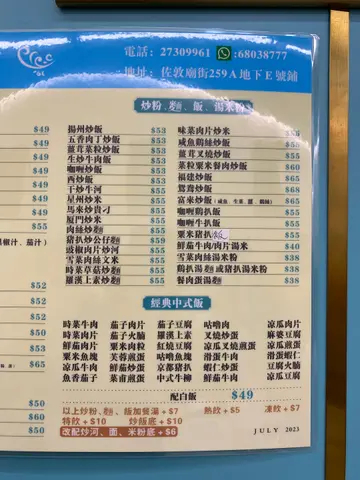 電話：27309961 68038777
地址：佐敦廟街259A地下E號鋪
炒粉、麵、飯、湯米粉
$49
$49
$49
$49
$49
$49
$55
黑椒汁、茄汁)
$52
$52
$50
$50
$53
$65
$50
$60
$50
揚州炒飯 $53
五香肉丁炒飯 $53
薑茸菜粒炒飯 $53
生炒牛肉飯 $53
咖喱炒飯 $53
西炒飯 $53
干炒牛河 $55
星州炒米 $55
馬來炒貴刁 $55
廈門炒米 $55
肉絲炒麵 $55
豬扒炒公仔麵 $59
豉椒肉片炒河 $55
雪菜肉絲文米 $55
時菜草菇炒麵 $55
羅漢上素炒麵 $55
味菜肉片炒米
咸魚鷄絲炒飯 $55
薑茸叉燒炒飯 $55
菜粒粟米餐肉炒飯 $60
福建炒飯 $65
鴛鴦炒飯 $68
富來炒飯 $65
咖喱鷄扒飯 $55
咖喱牛扒飯 $55
粟米豬扒飯 $55
鮮茄牛肉/肉片湯米 $40
雪菜肉絲湯米粉 $38
鷄扒湯麵或豬扒湯米粉 $38
餐肉蛋湯麵 $38
經典中式飯
時菜牛肉 茄子肉片 茄子豆腐 咕嚕肉 凉瓜肉片
時菜肉片 茄子火腩 羅漢上素 叉燒炒蛋 麻婆豆腐
鮮茄肉片 粟米肉粒 紅燒豆腐 凉瓜叉燒煎蛋 凉瓜煎蛋
粟米魚塊 芙蓉煎蛋 咕嚕魚塊 滑蛋牛肉 滑蛋蝦仁
凉瓜牛肉 鮮茄炒蛋 京都豬扒 蝦仁炒蛋 豆腐火腩
魚香茄子 菜甫煎蛋 中式牛柳 鮮茄豆腐 凉瓜豆腐
配白飯 $49
以上炒粉、麵、飯加餐湯 + $7 熱飲 + $5 凍飲 + $7
特飲 + $10 炒飯底 + $10
改配炒河、面、米粉底 + $6
JULY 2023